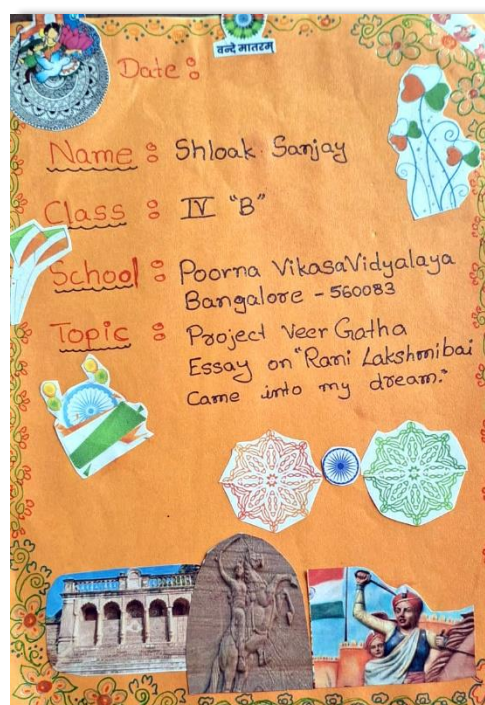 वन्दे मातरम्
Date :
Name : Shloak Sanjay
Class : IV "B"
School : Poorna VikasaVidyalaya
Bangalore - 560083
Topic : Project Veer Gatha
Essay on "Rani Lakshmibai
Came into my dream."